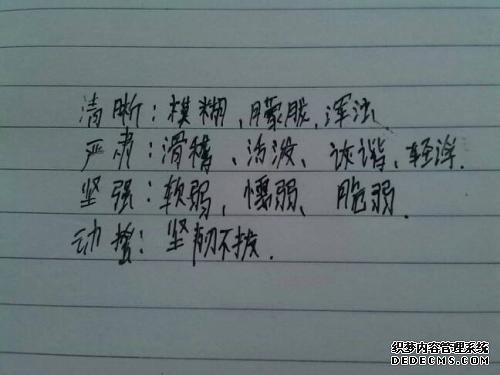 清晰：模糊、朦胧、浑浊
严肃：滑稽、活泼、诙谐、轻浮.
坚强：软弱、懦弱、脆弱.
动摇：坚韧不拔.
织梦内容管理系统
DEDECMS.COM